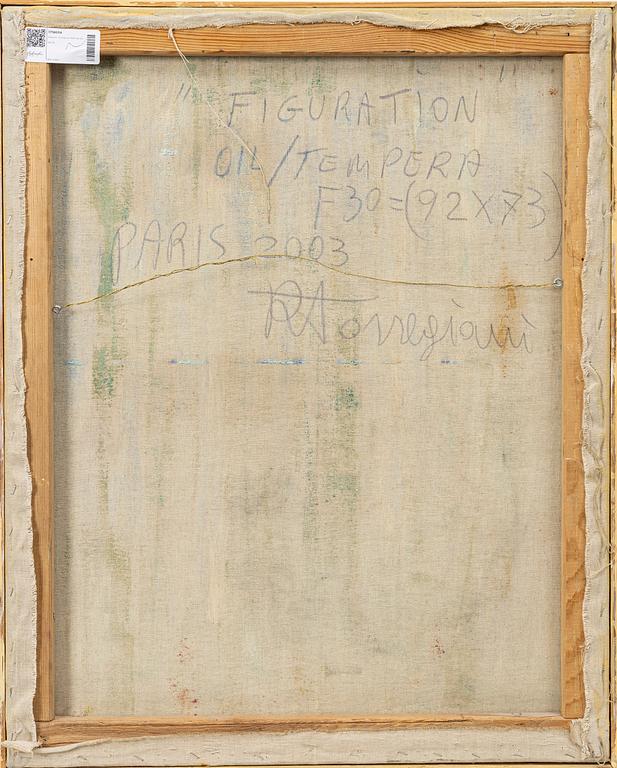 " FIGURATION "
OIL/TEMPERA
F30=(92X73)
PARIS 2003
R Torregiani